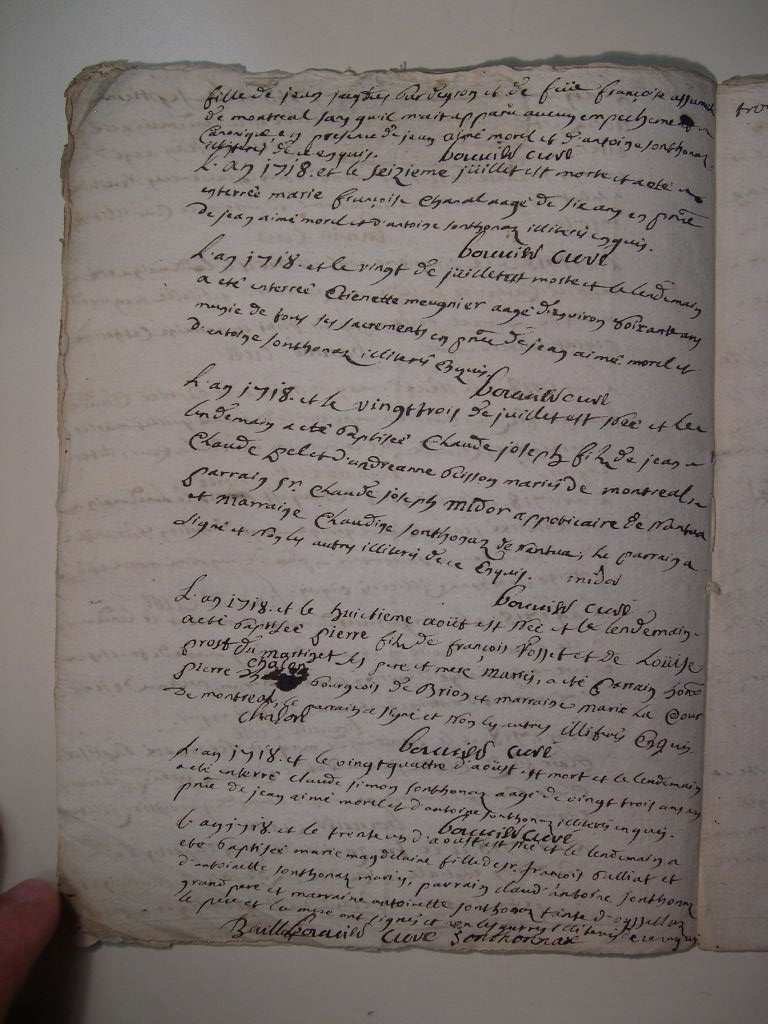 fille de jean jacques burdeyron et de feüe françoise
de montreal sans quil m'ait apparu aucun empechement
canonique en presence de jean aimé morel et d'antoine sonthonaz
illiterés de ce enquis. bouuier curé
L'an 1718. et le seizieme juillet est morte et a eté
enterreé marie françoise chanal aageé de six ans en pñce
de jean aimé morel et d'antoine sonthonaz illiterés enquis.
bouuier curé
L'an 1718. et le vingt de juillet est morte et le lendemain
a eté enterreé Etienette meugnier aageé d'enuiron soixante ans
munie de tous les sacrements en pñce de jean aimé morel et
d'antoine sonthonaz illiterés Enquis
bouuier curé
L'an 1718. et le vingt trois de juillet est né et le
lendemain a eté baptisé Claude joseph fils de jean
Claude pelet d'andreanne buisson mariés de montreal
parrain sr. Claude joseph midor appoticaire de Nantua
et marraine Claudine sonthonaz de Nantua, le parrain a
signé et non les autres illiterés de ce Enquis. midor
bouuier curé
L'an 1718. et le huictieme aoüt est né et le lendemain
a eté baptisé pierre fils de françois rosset et de Loüise
prost du martinet ses pere et mere mariés, a eté parrain honor
chalon
pierre bourgeois de Brion et marraine marie La Cour
de montreal, le parrain a signé et non les autres illiterés Enquis
chalon
bouuier curé
L'an 1718. et le vingt quattre d'aoüst est mort et le lendemain
a eté enterré claude simon sonthonaz aagé de vingt trois ans en
pñce de jean aimé morel et d'antoine sonthonaz illiterés enquis.
bouuier curé
L'an 1718. et le trente un d'aoust est née et le lendemain a
eté baptiseé marie magdelaine fille de sr. françois balliat et
d'antoinette sonthonaz mariés, parrain claud'antoine sonthonaz
grand pere et marraine antoinette sonthonaz tante d'oyssellaz
le pere et la mere ont signés et non les autres illiterés de ce enquis
bouuier curé Sonthonnax